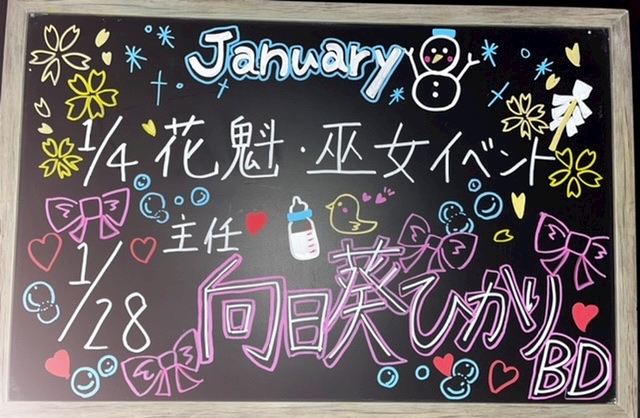 January
1/4 花魁・巫女イベント
主任
1/28 向日葵ひかり
BD